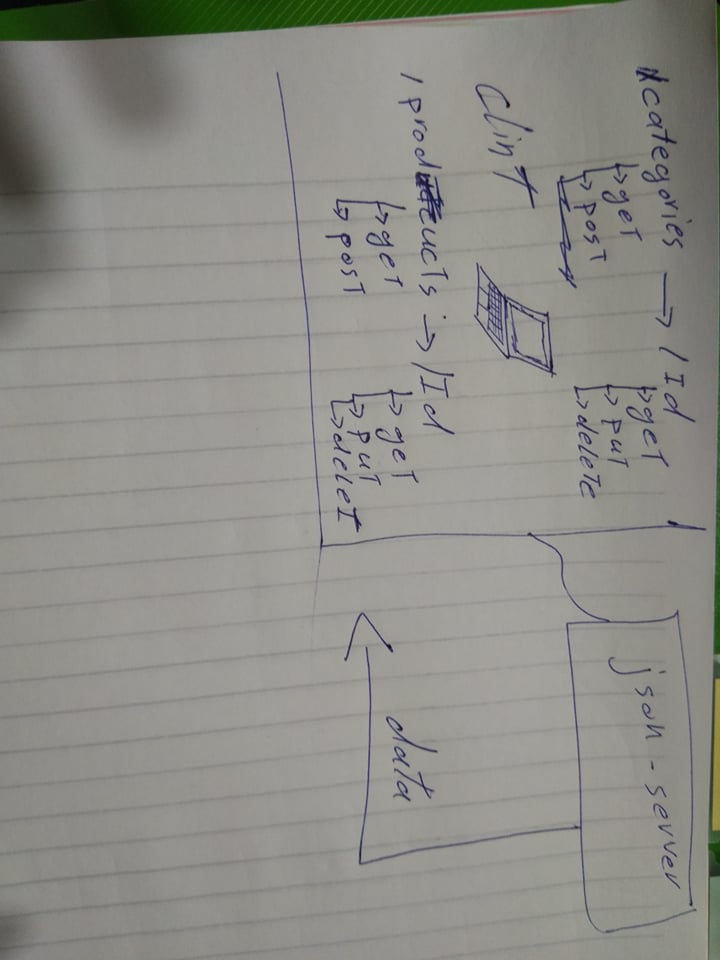 /categories → /Id
↳ get
↳ post
↳ get
↳ put
↳ delete
Clint
/products → /Id
↳ get
↳ post
↳ get
↳ put
↳ delet
json-server
data